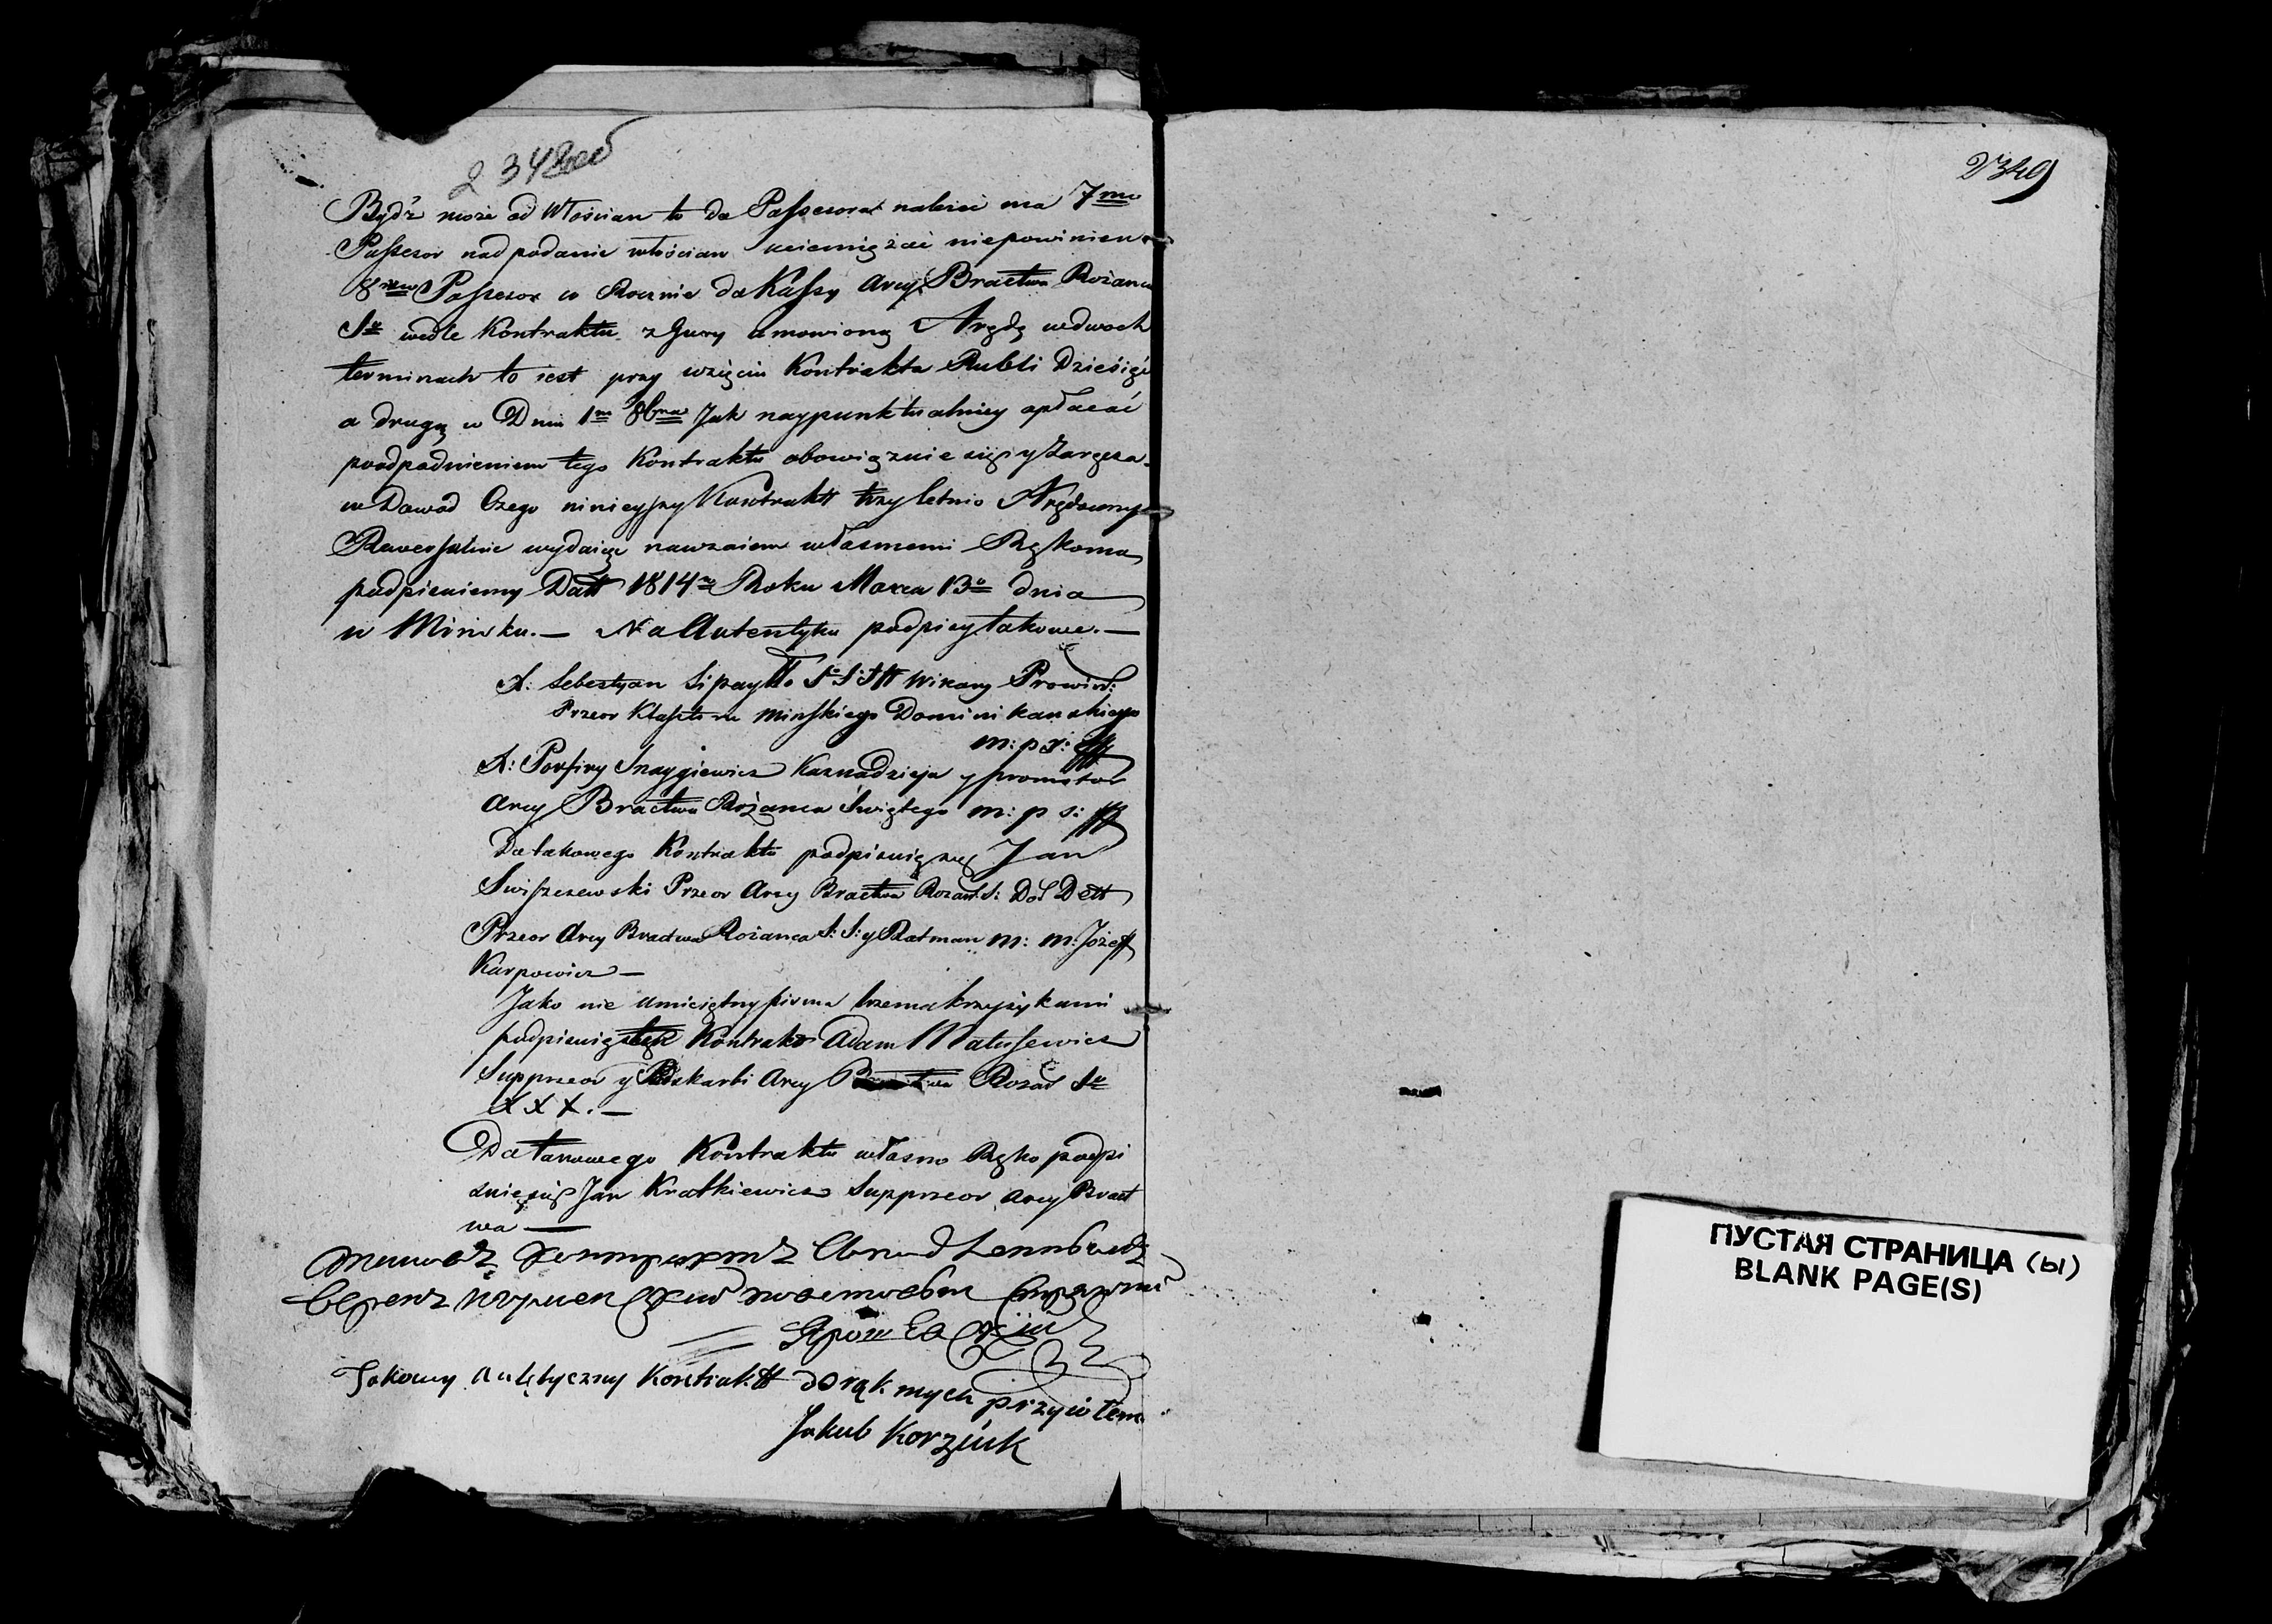 2348об
Bydź może od Włościan to do Possesora należec ma 7mo
Possesor nad podanie włościan uciemiężać niepowinien
8vo Possesor co Rocznie do Kassy Arcy Bractwa Rożanca
So wedle Kontraktu z Gury umowioną Arędę wedwoch
terminach to iest przy wzięciu Kontraktu Rubli Dziesięć
a drugą w Dniu 1m 8bra Jak naypunktualniey opłacać
pod upadnieniem tego Kontraktu obowiązuie się y zaręcza
w Dowod Czego ninieyszy Kontraktt trzy letnio Arędowny
Rewersalnie wydaiąc nawzaiem własnemi Rękoma
podpisuiemy Datt 1814o Roku Marca 13o dnia
w Minsku.— Na Autentyku podpisy takowe.—
X: Sebestyan Prowin:
Przeor Klasztoru Minskiego Dominikanskiego
m: p r:
X: Porfiry Kaznadzieja y promotor
Arcy Bractwa Rożanca Swiętego m: p s:
Do takowego Kontraktu podpisuię się Jan
Swiszczewski Przeor Arcy Bractwa Rożań: S:
Przeor Arcy Bractwa Rożanca S: S: y Ratman m: m: Jozeff
Karpowicz —
Jako nie umieiętny pisma trzema krzyżykami
podpisuię Kontrakt Adam Matusewicz
Supprzeor y Podskarbi Arcy Bractwa Rożań So
X X X. —
Do takowego Kontraktu własno Ręko podpi
suię się Jan Kratkiewicz Supprzeor Arcy Bract
wa —
Takowy Autętyczny Kontraktt do rąk mych przyiołem
Jakub Korziuk
2349
ПУСТАЯ СТРАНИЦА (Ы)
BLANK PAGE(S)